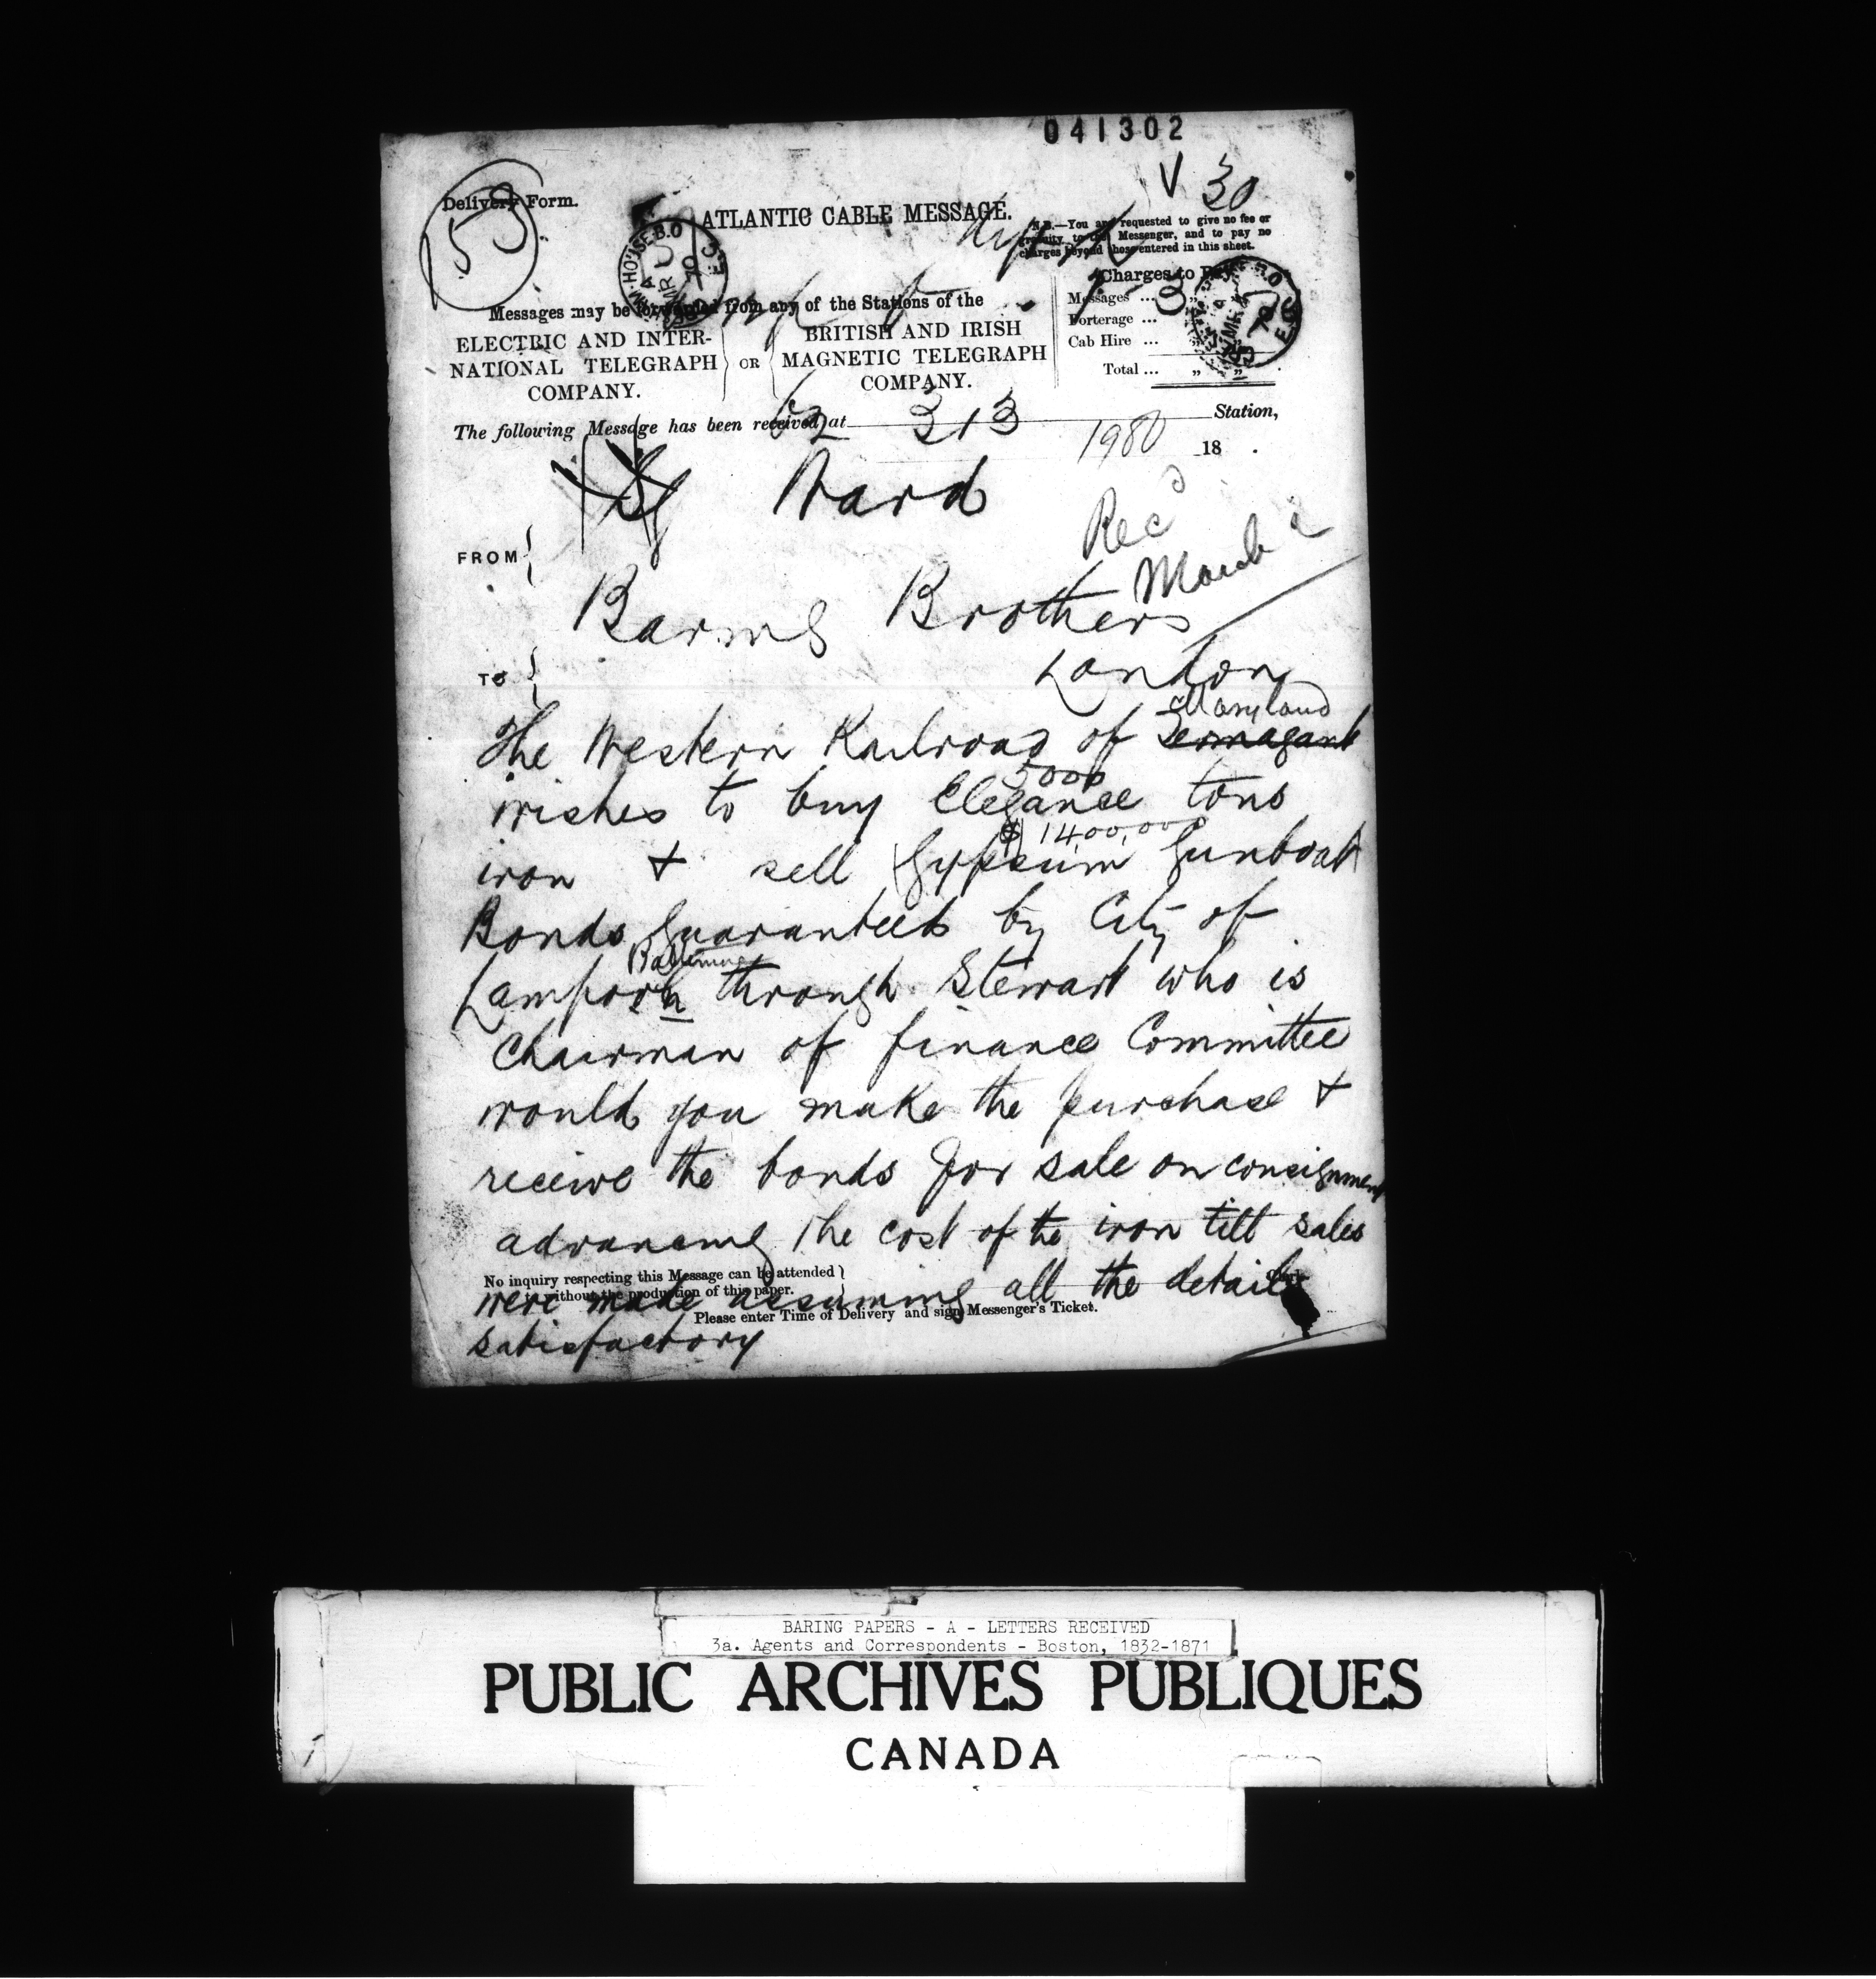 041302
V 30
158
Delivery Form.
ATLANTIC CABLE MESSAGE.
N.B.—You are requested to give no fee or
gratuity to the Messenger, and to pay no
charges beyond those entered in this sheet.
Charges to Pay
Messages ...
Porterage ...
Cab Hire ...
Total ... „ „
Messages may be forwarded from any of the Stations of the
ELECTRIC AND INTER-
NATIONAL TELEGRAPH
COMPANY.
OR
BRITISH AND IRISH
MAGNETIC TELEGRAPH
COMPANY.
The following Message has been received at 313 Station,
1980 18 .
Ward
Recd
March 2
FROM
Baring Brothers
London
TO
Maryland
The Western Railroad of Termagant
5000
wishes to buy Elegance tons
$ 1400,000
iron + sell (Gypsum Gunboat
Bonds guaranteed by City of
Baltimore
Lamporn through Stewart who is
Chairman of finance Committee
would you make the purchase +
receive the bonds for sale on consignment
advancing the cost of the iron till sales
No inquiry respecting this Message can be attended
to without the production of this paper.
Clerk
were made assuming all the details
Please enter Time of Delivery and sign Messenger's Ticket.
satisfactory
BARING PAPERS - A - LETTERS RECEIVED
3a. Agents and Correspondents - Boston, 1832-1871
PUBLIC ARCHIVES PUBLIQUES
CANADA